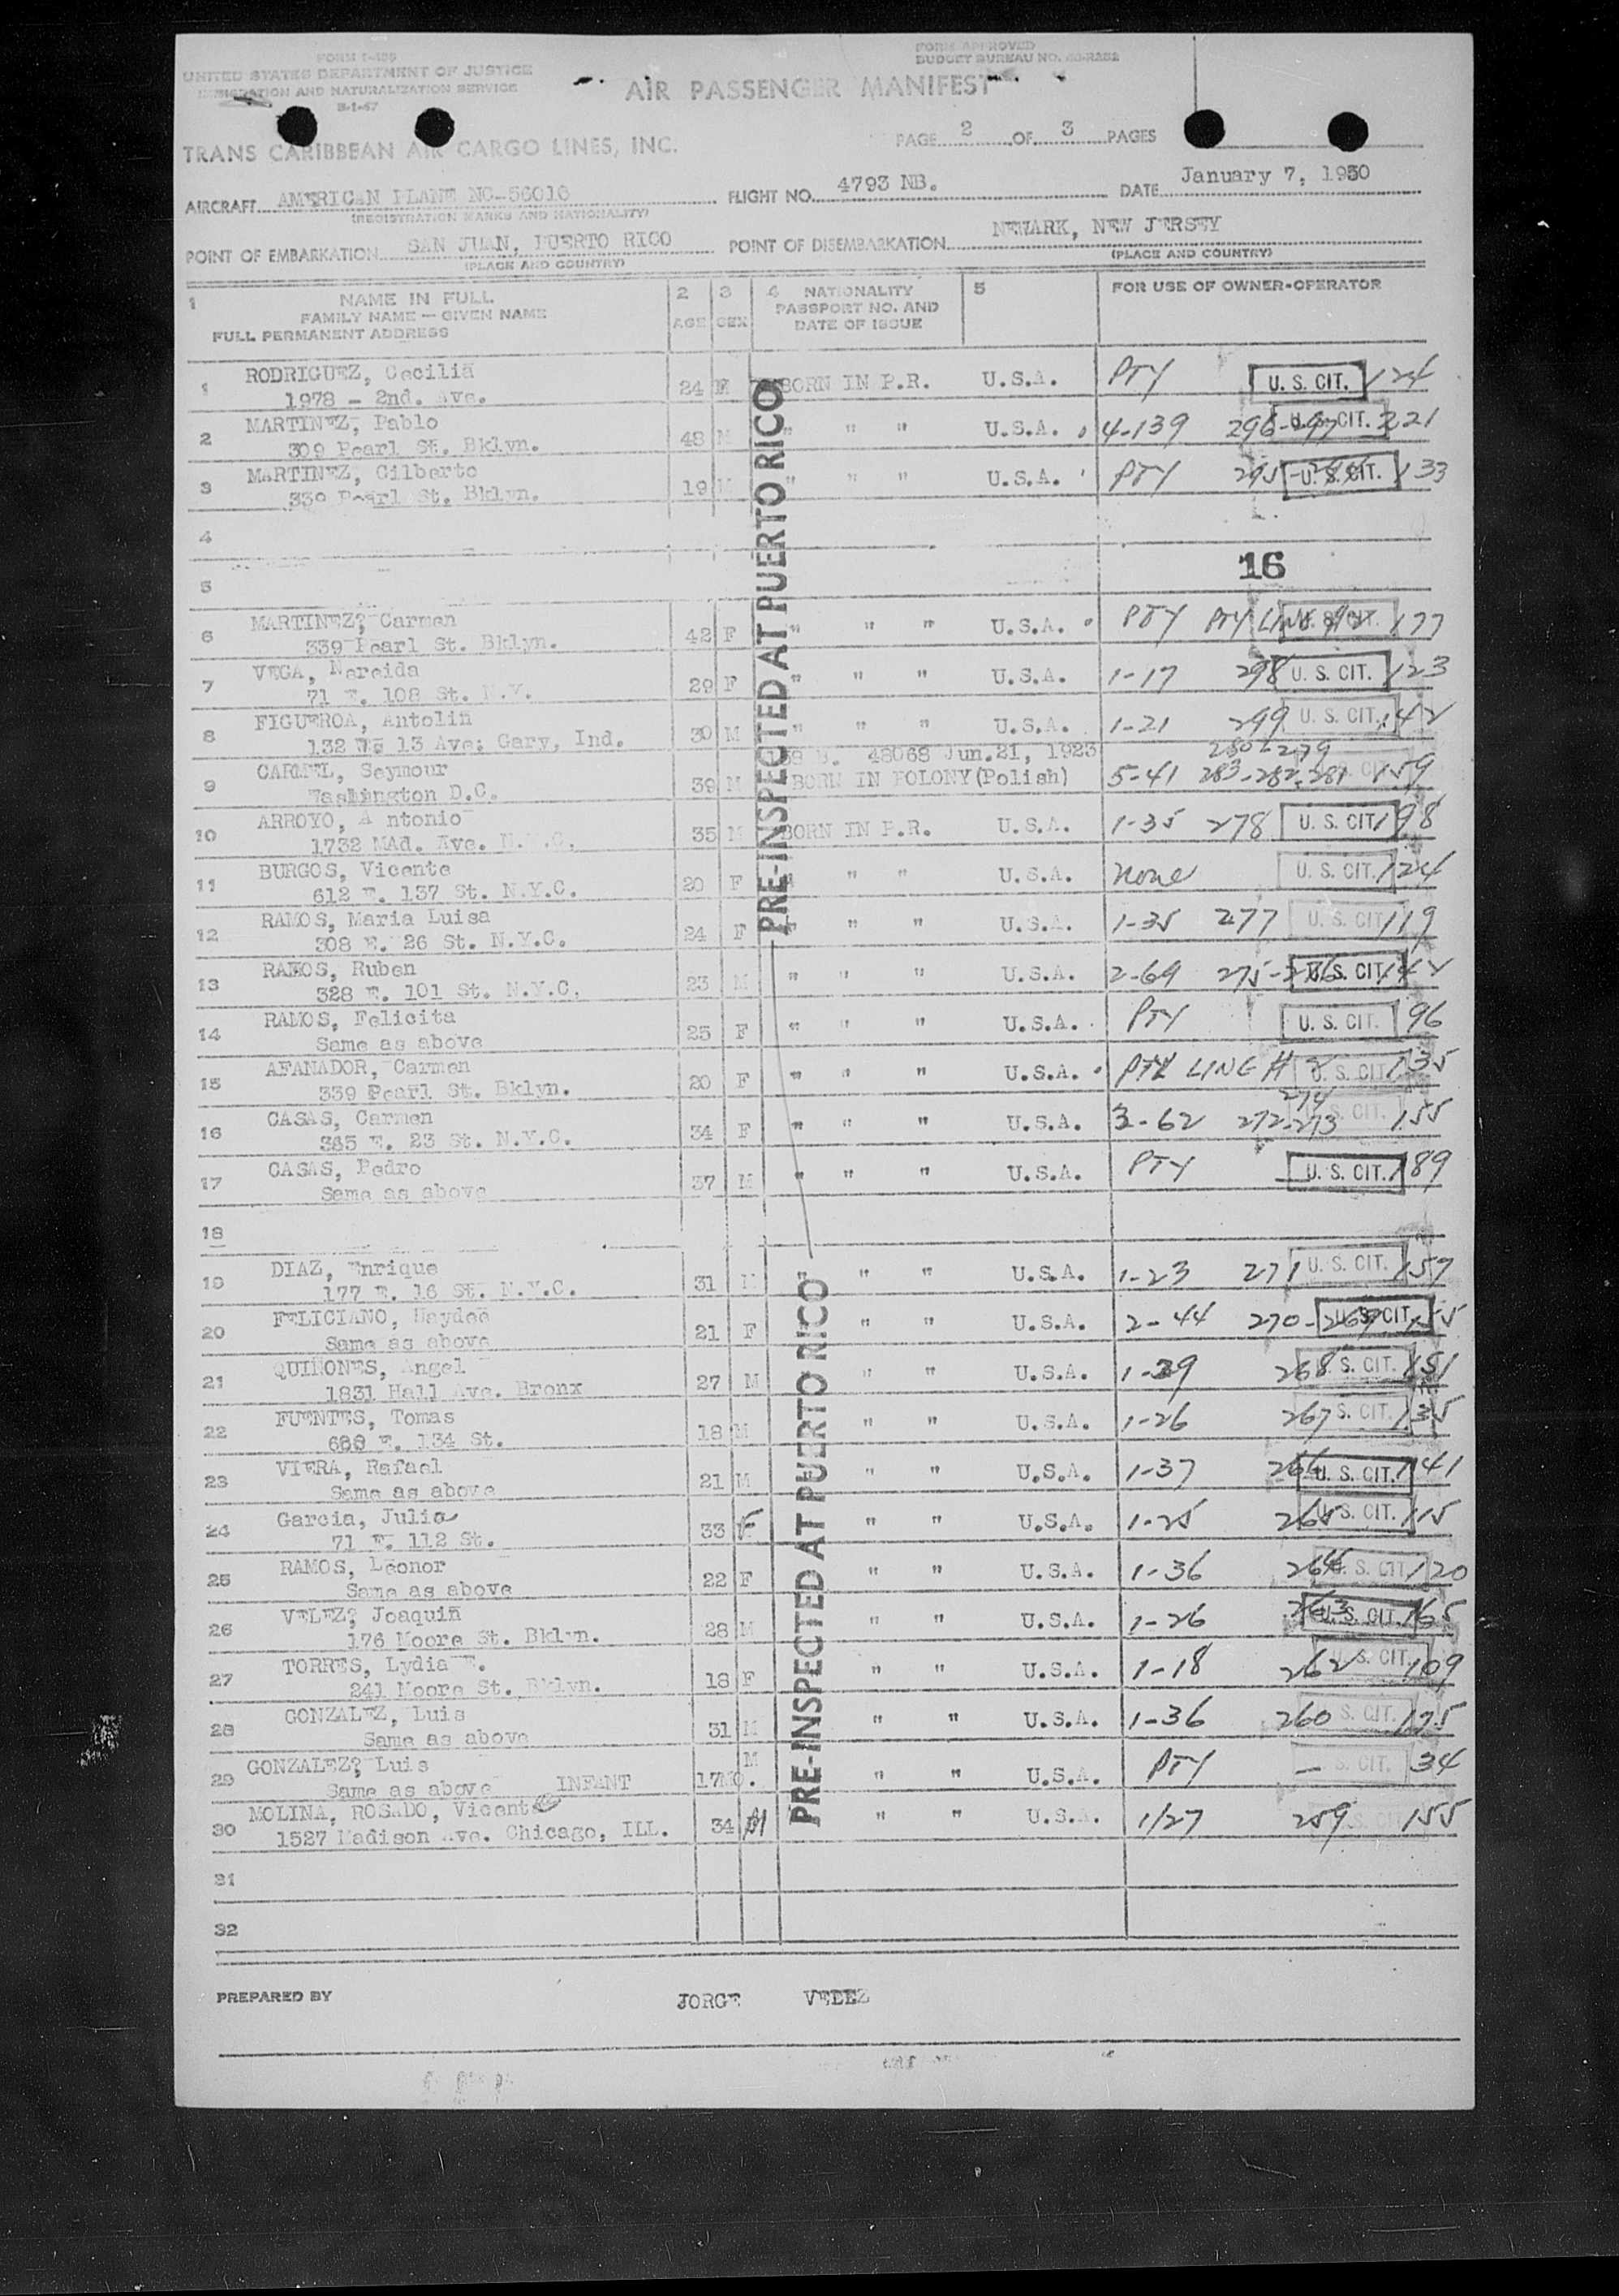 FORM I-466
UNITED STATES DEPARTMENT OF JUSTICE
IMMIGRATION AND NATURALIZATION SERVICE
FORM APPROVED
BUDGET BUREAU NO.
AIR PASSENGER MANIFEST
TRANS CARIBBEAN AIR CARGO LINES, INC.
PAGE 2 OF 3 PAGES
AIRCRAFT AMERICAN PLANE NC-56016 FLIGHT NO. 4793 NB. DATE January 7, 1950
(REGISTRATION MARKS AND NATIONALITY)
POINT OF EMBARKATION SAN JUAN, PUERTO RICO POINT OF DISEMBARKATION NEWARK, NEW JERSEY
(PLACE AND COUNTRY) (PLACE AND COUNTRY)
1 NAME IN FULL 2 3 4 NATIONALITY 5 FOR USE OF OWNER-OPERATOR
FAMILY NAME — GIVEN NAME AGE SEX PASSPORT NO. AND
FULL PERMANENT ADDRESS DATE OF ISSUE
PRE-INSPECTED AT PUERTO RICO
1 RODRIGUEZ, Cecilia 24 F BORN IN P.R. U.S.A. PTY U. S. CIT. 124
1978 - 2nd. Ave.
2 MARTINEZ, Pablo 48 M " " " U.S.A. 4-139 296-297 U. S. CIT. 221
309 Pearl St. Bklyn.
3 MARTINEZ, Gilberto 19 M " " " U.S.A. PTY 295 U. S. CIT. 133
339 Pearl St. Bklyn.
4
16
5
6 MARTINEZ, Carmen 42 F " " " U.S.A. PTY PTY LINE U. S. CIT. 177
339 Pearl St. Bklyn.
7 VEGA, Nereida 29 F " " " U.S.A. 1-17 298 U. S. CIT. 123
71 E. 108 St. N.Y.
8 FIGUEROA, Antolin 30 M " " " U.S.A. 1-21 299 U. S. CIT. 142
132 W. 13 Ave; Gary, Ind.
48068 Jun.21, 1923 280-279
9 CARMEL, Seymour 39 M BORN IN POLONY(Polish) 5-41 283-282-281 CIT. 159
Washington D.C.
10 ARROYO, Antonio 35 M BORN IN P.R. U.S.A. 1-35 278 U. S. CIT. 198
1732 MAd. Ave. N.Y.C.
11 BURGOS, Vicente 20 F " " " U.S.A. None U. S. CIT. 124
612 E. 137 St. N.Y.C.
12 RAMOS, Maria Luisa 24 F " " " U.S.A. 1-35 277 U. S. CIT 119
308 E. 26 St. N.Y.C.
13 RAMOS, Ruben 23 M " " " U.S.A. 2-69 275-276 U. S. CIT. 142
328 E. 101 St. N.Y.C.
14 RAMOS, Felicita 25 F " " " U.S.A. PTY U. S. CIT. 96
Same as above
15 AFANADOR, Carmen 20 F " " " U.S.A. PTY LINE # 2 U. S. CIT 135
339 Pearl St. Bklyn.
274
16 CASAS, Carmen 34 F " " " U.S.A. 3-62 272-273 S. CIT. 155
365 E. 23 St. N.Y.C.
17 CASAS, Pedro 37 M " " " U.S.A. PTY U. S. CIT. 189
Same as above
18
PRE-INSPECTED AT PUERTO RICO
19 DIAZ, Enrique 31 M " " " U.S.A. 1-23 271 U. S. CIT. 157
177 E. 16 St. N.Y.C.
20 FELICIANO, Haydee 21 F " " U.S.A. 2-44 270-269 U. S. CIT. 155
Same as above
21 QUIÑONES, Angel 27 M " " U.S.A. 1-39 268 S. CIT. 151
1831 Hall Ave. Bronx
22 FUENTES, Tomas 18 M " " U.S.A. 1-26 267 S. CIT. 135
688 E. 134 St.
23 VIERA, Rafael 21 M " " U.S.A. 1-37 266 U. S. CIT. 141
Same as above
24 Garcia, Julia 33 F " " U.S.A. 1-25 265 U. S. CIT. 115
71 E. 112 St.
25 RAMOS, Leonor 22 F " " U.S.A. 1-36 264 U. S. CIT 120
Same as above
26 VELEZ, Joaquin 28 M " " U.S.A. 1-26 263 U. S. CIT. 165
176 Moore St. Bklyn.
27 TORRES, Lydia E. 18 F " " U.S.A. 1-18 262 S. CIT. 109
241 Moore St. Bklyn.
28 GONZALEZ, Luis 31 M " " U.S.A. 1-36 260 S. CIT. 175
Same as above
29 GONZALEZ, Luis 17MO. M " " U.S.A. PTY — S. CIT. 34
Same as above INFANT
30 MOLINA, ROSADO, Vicente 34 M " " U.S.A. 1/27 259 S. CIT 155
1527 Madison Ave. Chicago, ILL.
31
32
PREPARED BY JORGE VEDEZ